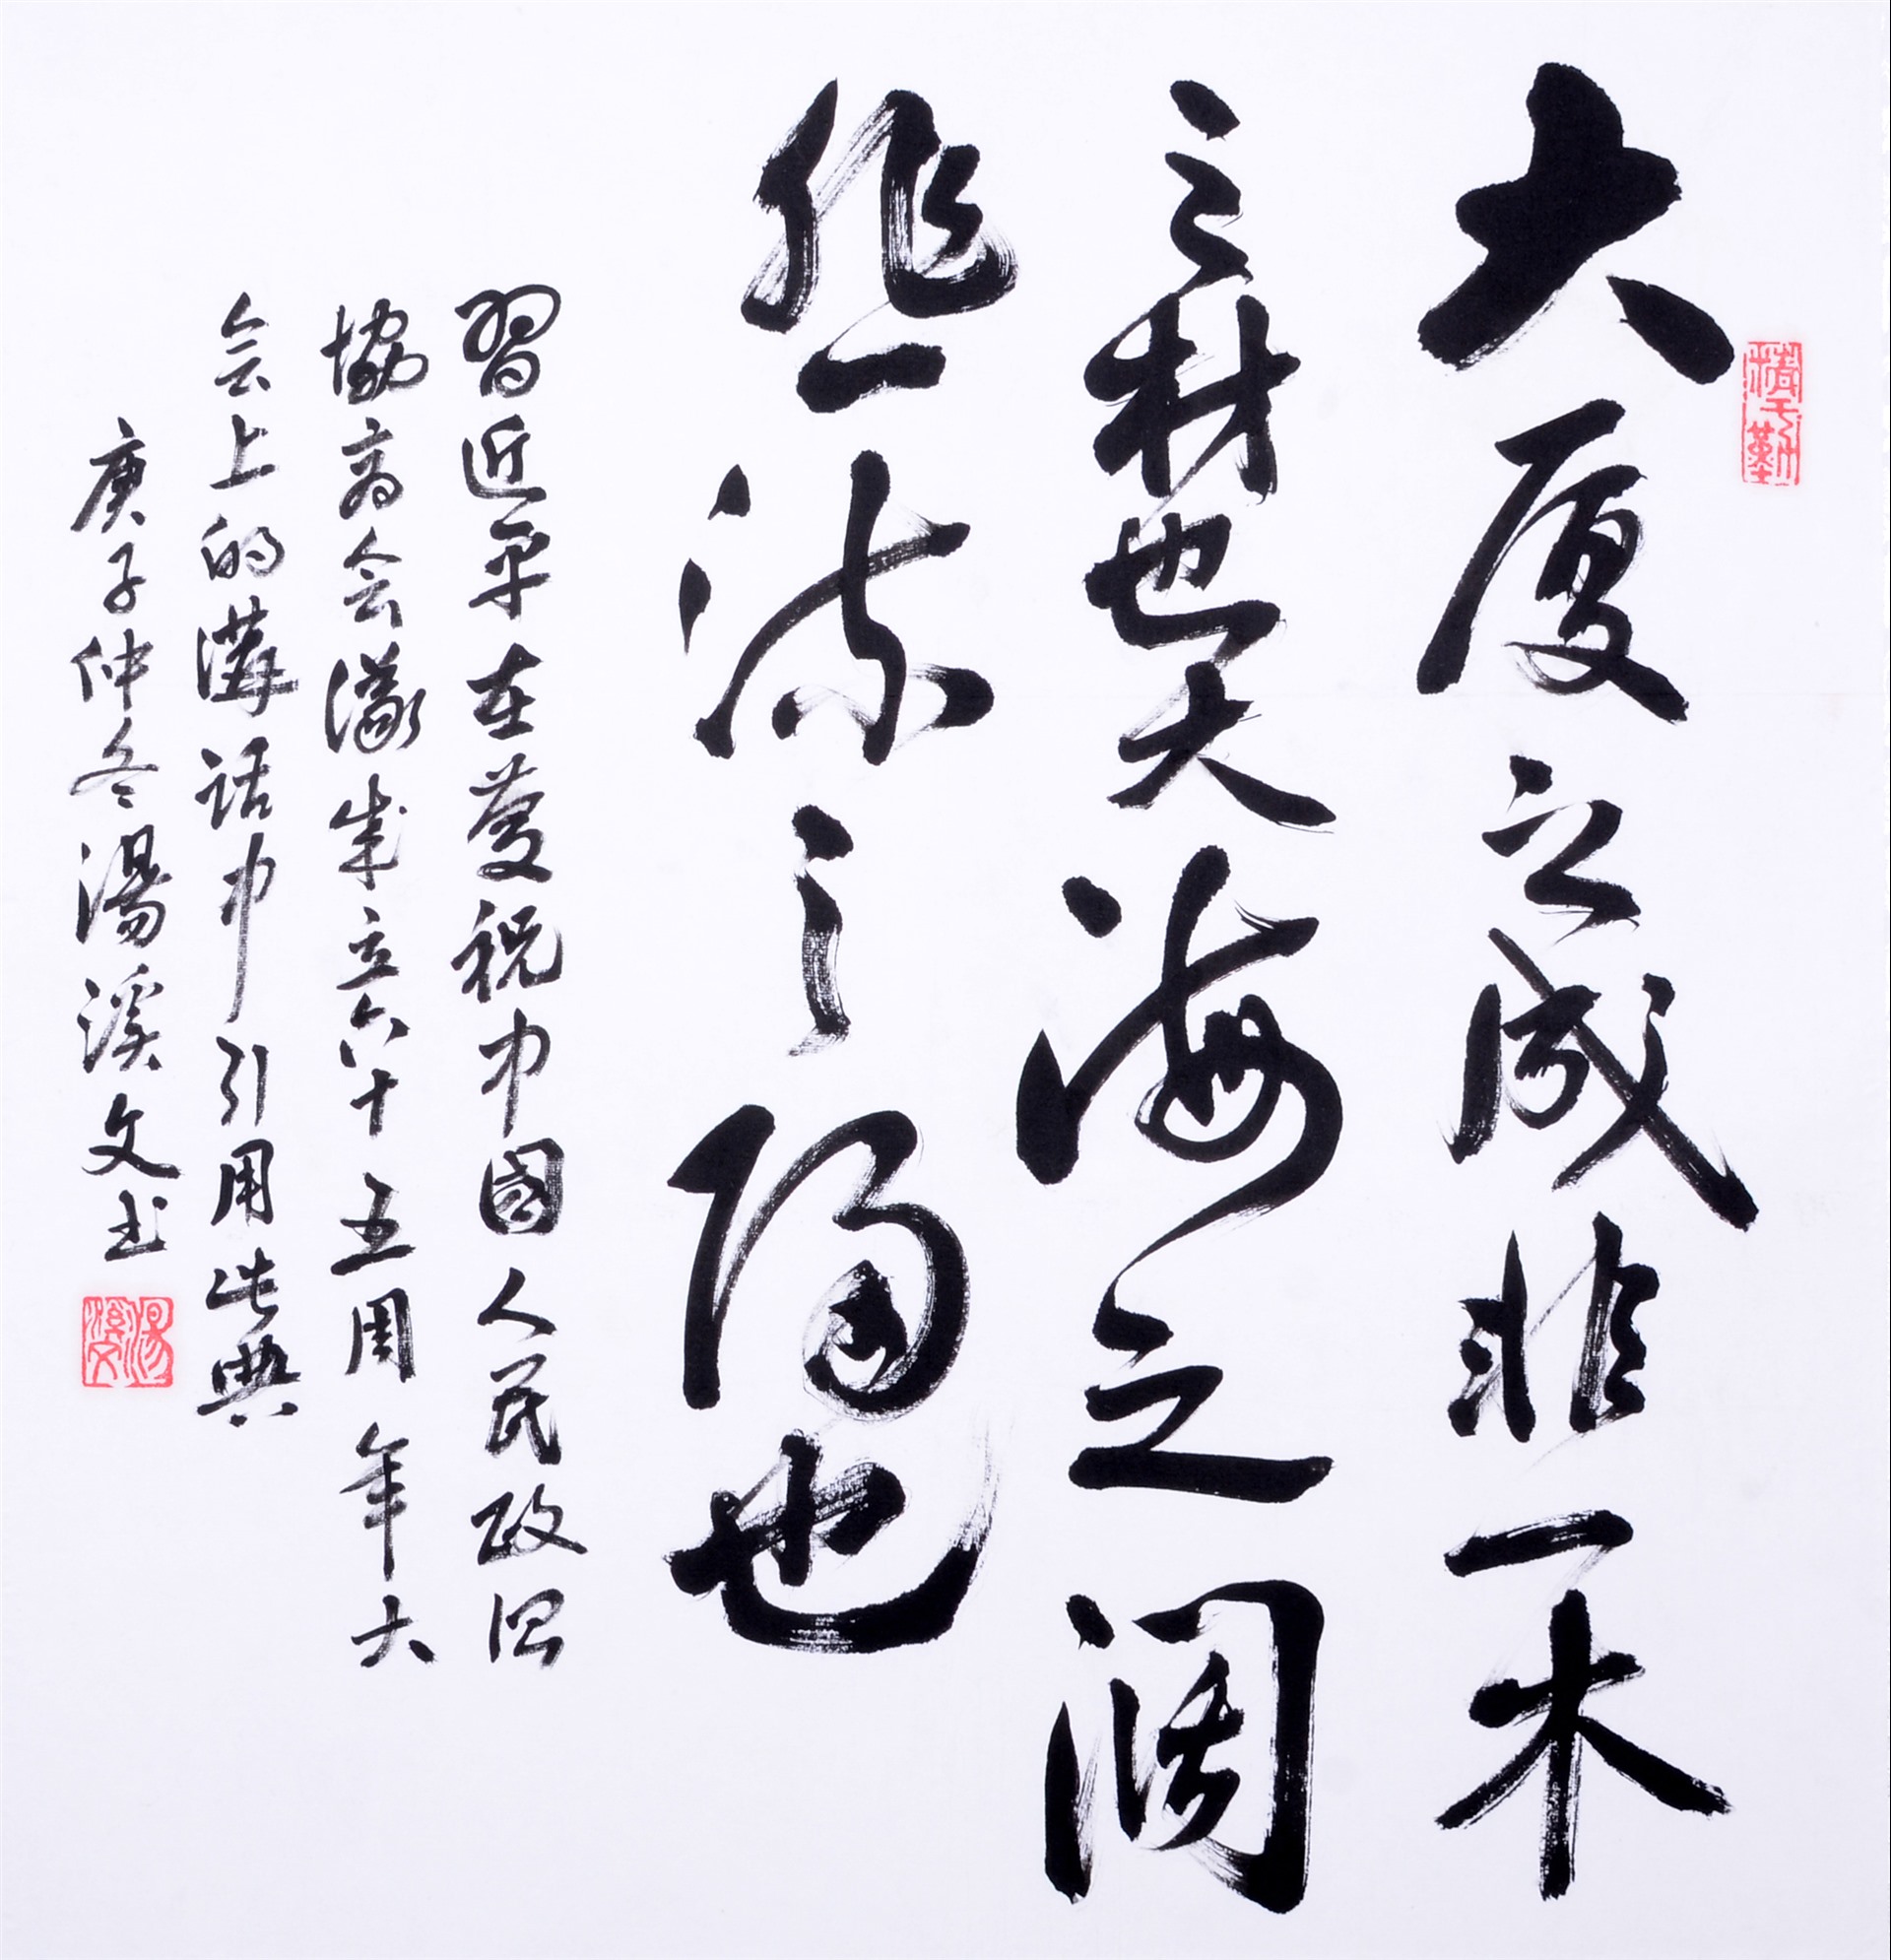 精于勤
大厦之成非一木
之材也大海之阔
非一流之归也
習近平在慶祝中國人民政治
協商会議成立六十五周年大
会上的講話中引用此典
庚子仲冬湯溪文书
湯溪文